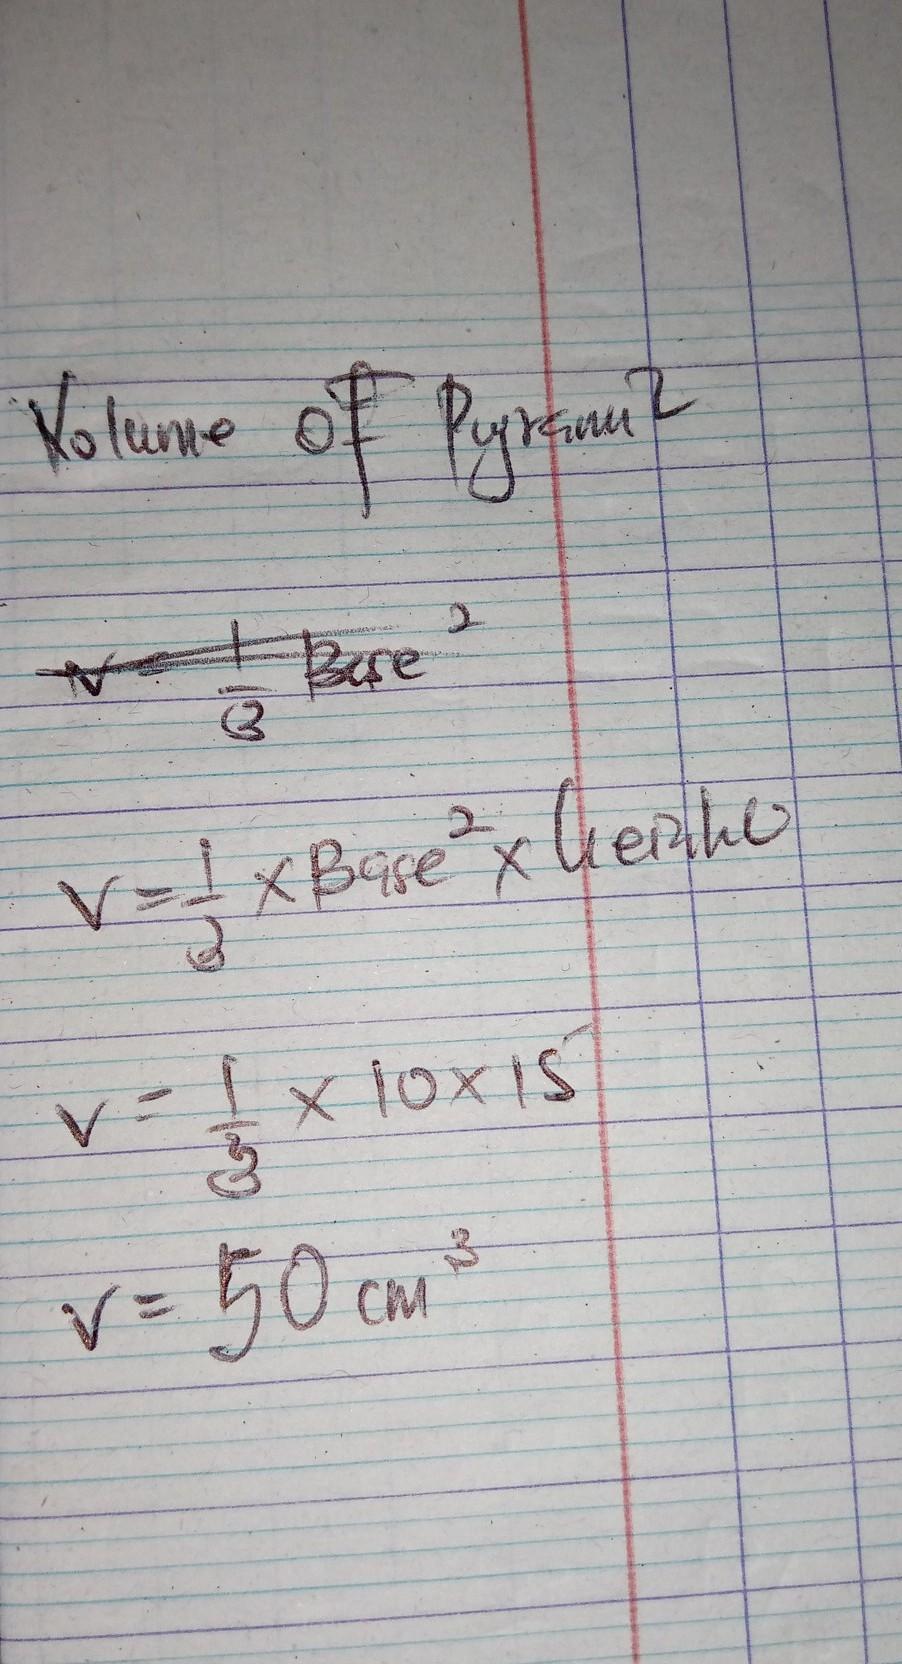 Volume of Pyramid
V = 1/3 Base²
V = 1/3 × Base² × height
V = 1/3 × 10 × 15
V = 50 cm³